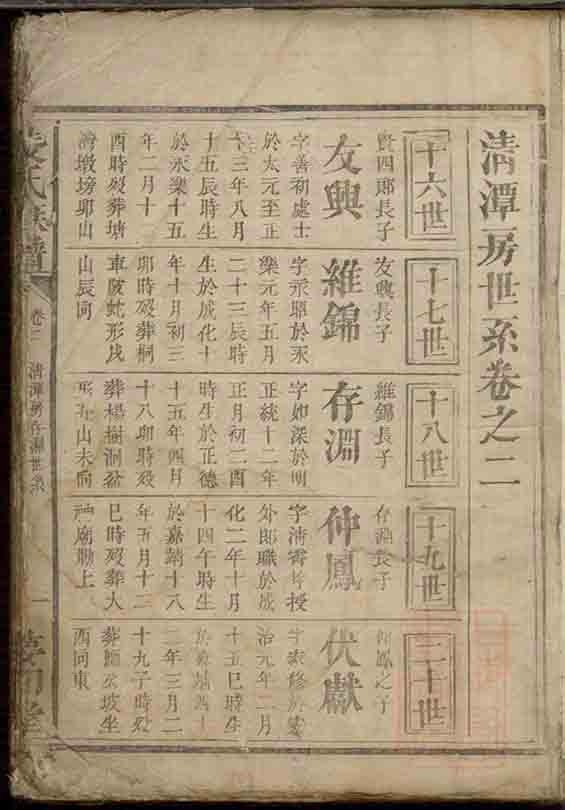 清潭房世系卷之二
十六世
賢四郎長子
友興
字善初處士
於大元至正
十三年八月
十五辰時生
於永樂十五
年二月十
酉時歿葬塘
灣墩塝卯山
十七世
友興長子
維錦
字永昭於永
樂元年五月
二十三辰時
生於成化十
年十月初三
卯時歿葬桐
車陂蛇形戌
山辰向
十八世
維錦長子
存淵
字如深於明
正統十二年
正月初二酉
時生於正德
十五年四月
十八卯時歿
葬楊樹洞盆
形丑山未向
十九世
存淵長子
仲鳳
字清 授
外郎職於成
化二年十月
十四午時生
於嘉靖十八
年五月十三
巳時歿葬大
神廟 上
二十世
仲鳳之子
伏獻
字 修於宏
治元年二月
十五巳時生
於 靖四十
三年三月二
十九子時歿
葬 坡坐
西向東
氏族譜
卷二
清潭房存淵世系
一